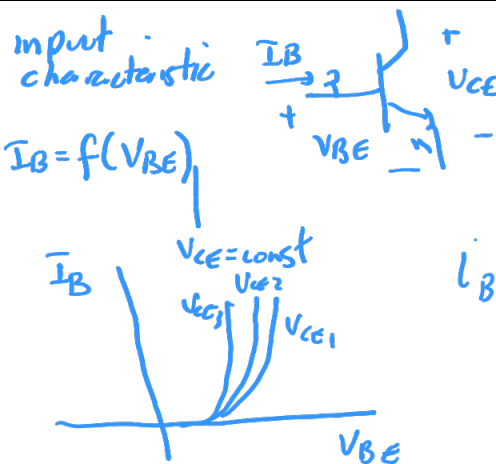 input
characteristic
IB
+
VCE
+
VBE
-
-
IB = f(VBE)
VCE = const
IB
VCE3
VCE2
VCE1
iB
VBE